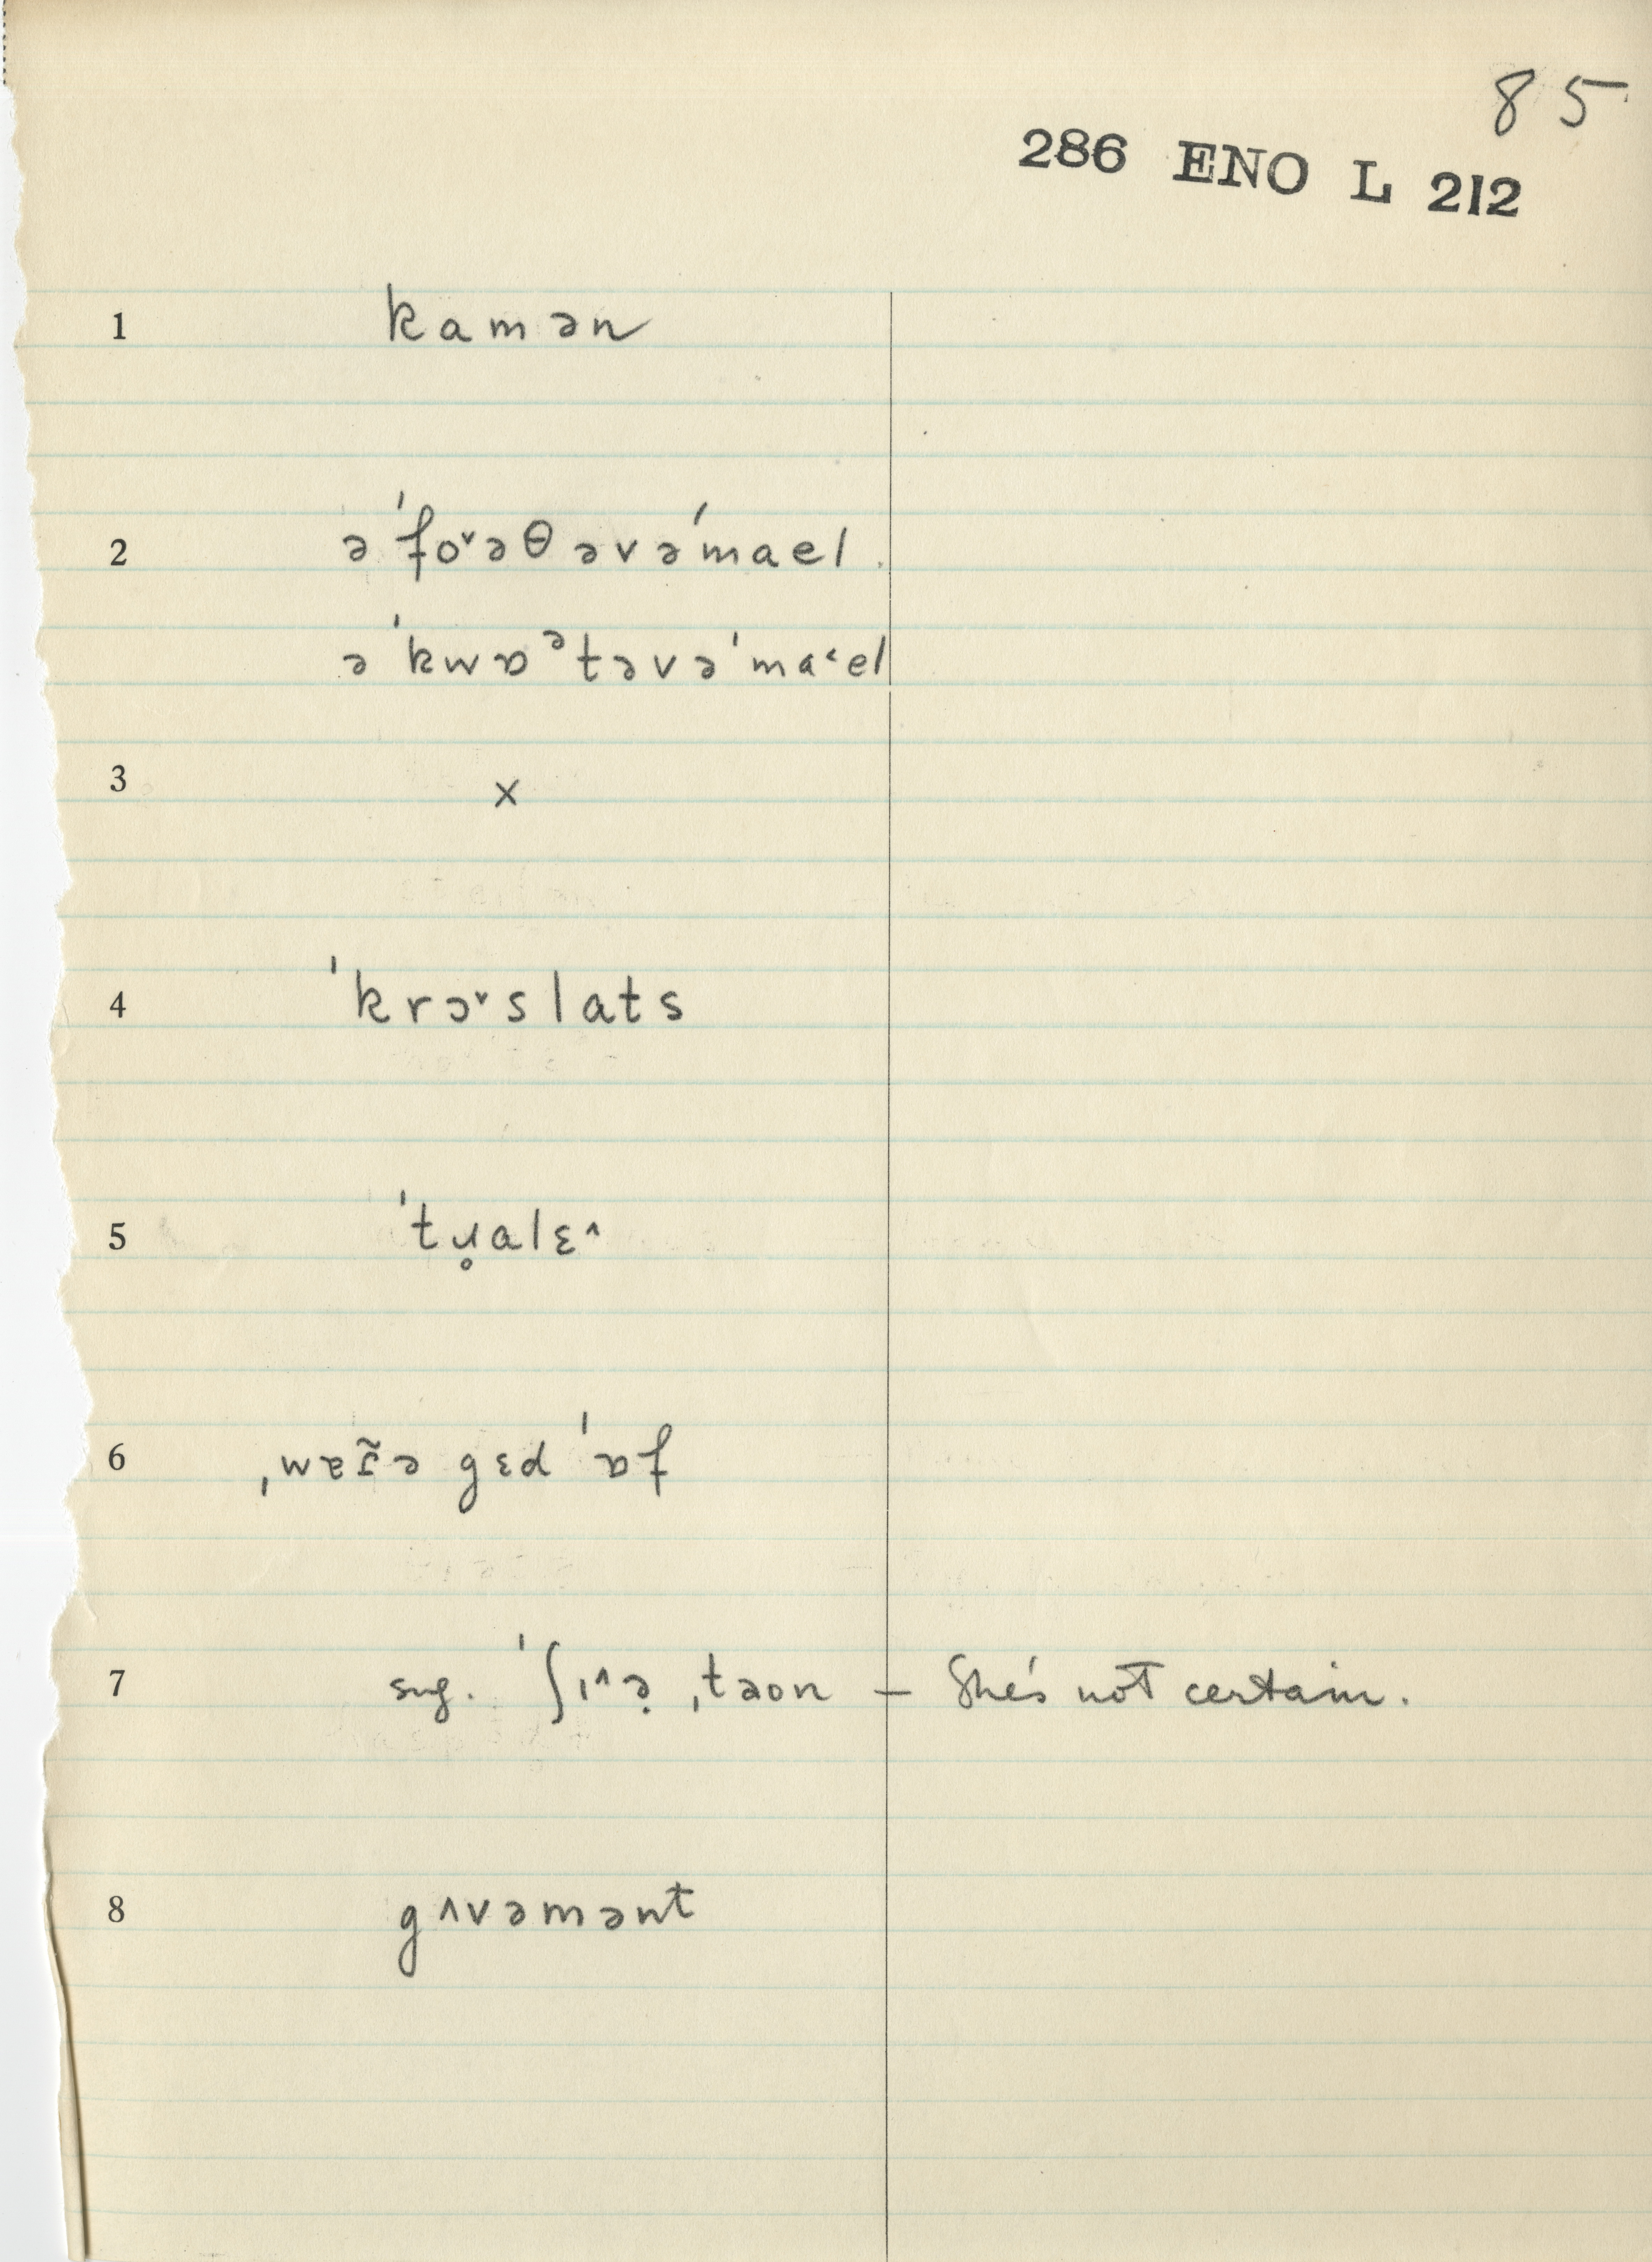 85
286 ENO L 212
1 kamən
2 ə ˈfo˅əθ əvəˈmael
ə ˈkwɒᵊtəvəˈma˂el
3 x
4 ˈkrɔ˅slats
5 ˈtɥ̊alɛ˄
6 ˌwɐɾ̃ə gɛd ˈɒf
7 sug. ˈʃɪ˄ə̣ ˌtəon – She's not certain.
8 gʌvəmənt